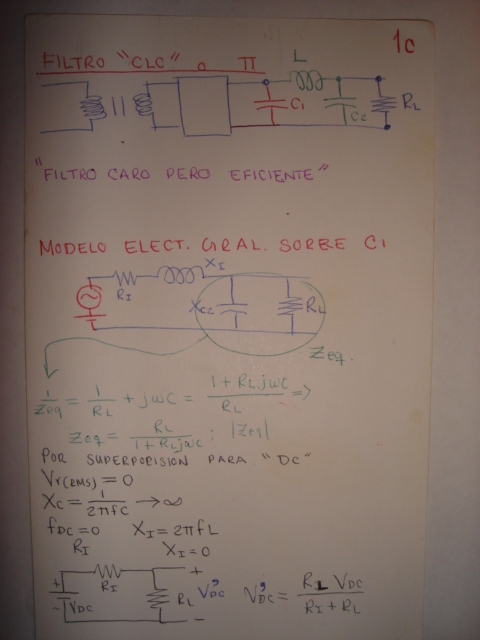 1c
FILTRO "CLC" o π
L
C1
C2
RL
"FILTRO CARO PERO EFICIENTE"
MODELO ELECT. GRAL. SOBRE C1
XI
RI
XC2
RL
Zeq.
1/Zeq = 1/RL + jωC = (1 + RL jωC)/RL ⇒
Zeq = RL/(1 + RL jωC) ; |Zeq|
POR SUPERPOSISION PARA "DC"
Vr(RMS) = 0
XC = 1/(2πfC) → ∞
fDC = 0 XI = 2πfL
RI XI = 0
+ RI +
VDC RL V'DC V'DC = RL VDC/(RI + RL)
- -